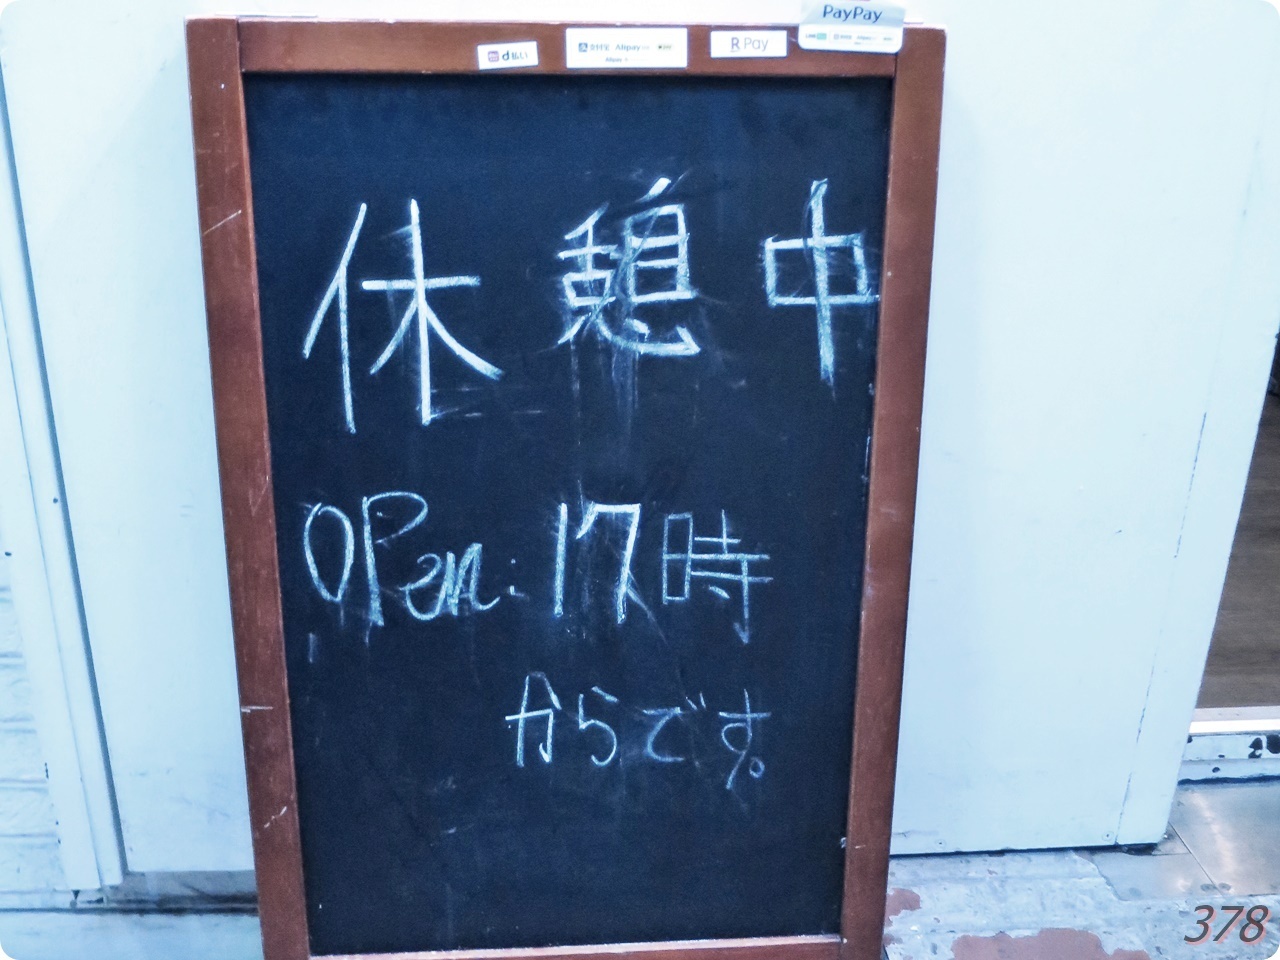 PayPay
d払い
支付宝 Alipay
R Pay
休憩中
OPen:17時
からです。
378